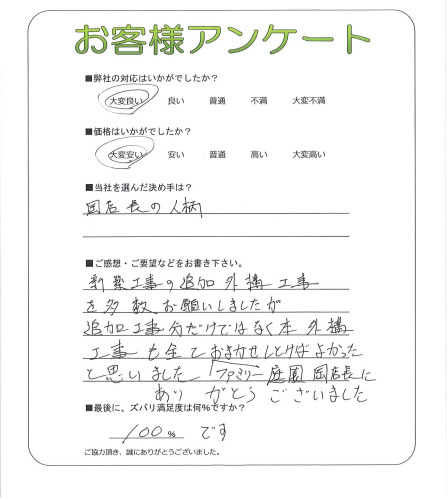 お客様アンケート
■弊社の対応はいかがでしたか?
大変良い 良い 普通 不満 大変不満
■価格はいかがでしたか?
大変安い 安い 普通 高い 大変高い
■当社を選んだ決め手は?
岡店長の人柄
■ご感想・ご要望などをお書き下さい。
新築工事の追加外構工事
を多数お願いしましたが
追加工事分だけではなく本外構
工事も全ておまかせしとけばよかった
と思いました。ファミリー庭園岡店長に
ありがとうございました
■最後に、ズバリ満足度は何%ですか?
100%です
ご協力頂き、誠にありがとうございました。